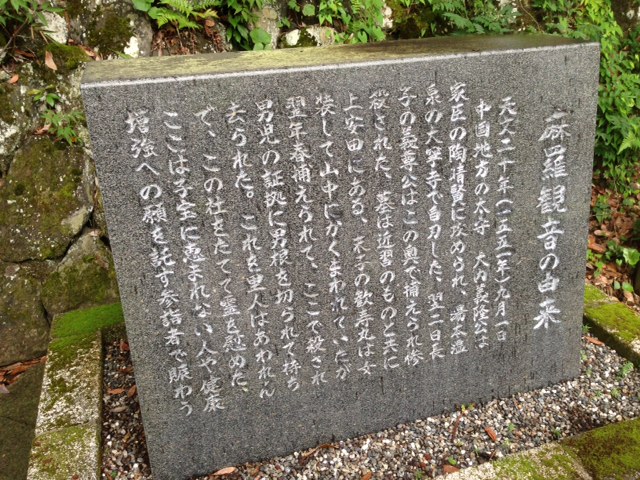 麻羅観音の由来
天文二十年（一五五一年）九月一日
中国地方の太守 大内義隆公は
家臣の陶晴賢に攻められ、湯本温
泉の大寧寺で自刃した、翌二日長
子の義尊公はこの奥で捕えられ惨
殺された、墓は近習のものと共に
上安田にある、次子の歓寿丸は女
装して山中にかくまわれていたが
翌年春捕えられて、ここで殺され
男児の証拠に男根を切られて持ち
去られた。これを里人はあわれん
で、この社をたてて霊を慰めた、
ここは子宝に恵まれない人や健康
増強への願を託す参詣者で賑わう